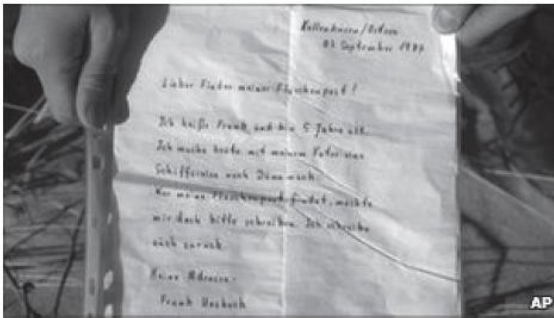 Kellenhusen/Ostsee
07. September 1987
Lieber Finder meiner Flaschenpost!
Ich heiße Frank und bin 5 Jahre alt.
Ich mache heute mit meinem Vater eine
Schiffsreise nach Dänemark.
Wer meine Flaschenpost findet, möchte
mir doch bitte schreiben. Ich schreibe
auch zurück.
Meine Adresse:
Frank
AP